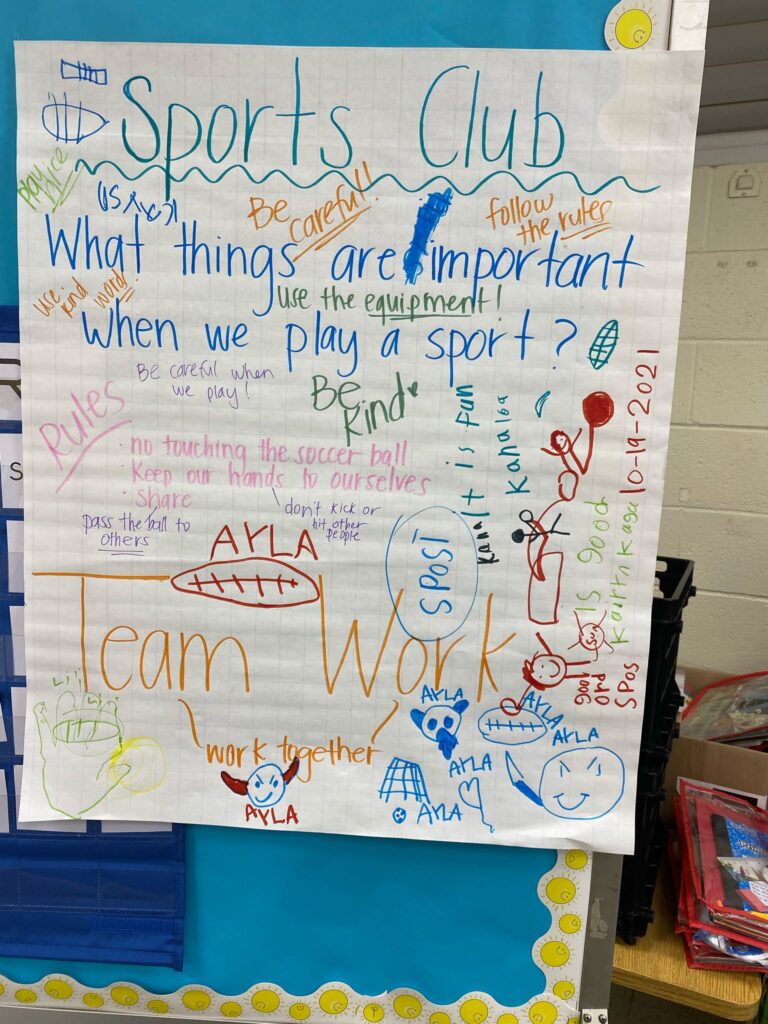 Sports Club
play nice
Be careful!
follow the rules
What things are important
use kind words
use the equipment!
when we play a sport?
Be careful when
we play!
Be Kind
Rules
· no touching the soccer ball
· Keep our hands to ourselves
· share
pass the ball to
others
don't kick or
hit other
people
It is fun
Kanaloa
Kana
10-19-2021
Is good
AYLA
SPOSI
Team Work
work together
Lili
Sun
good
SPOS
AYLA
AYLA
AYLA
AYLA
AYLA
AYLA